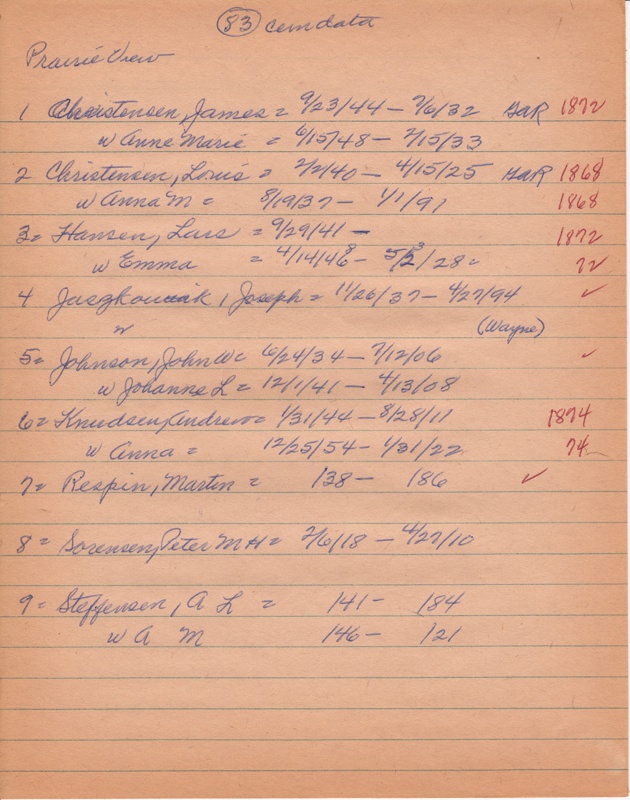 83 cemdata
Prairie View
1 Christensen, James = 9/23/44 - 7/6/32 GaR 1872
w Anne Marie = 6/15/48 - 7/15/33
2 Christensen, Louis = 2/2/40 - 4/15/25 GaR 1868
w Anna M = 8/19/37 - 1/1/91 1868
3 = Hansen, Lars = 9/29/41 - 1872
w Emma = 4/14/468 - 5/23/28 = 72
4 Juszkowiak, Joseph = 11/26/37 - 4/27/94 ✓
w (Wayne)
5 = Johnson, John W = 6/24/34 - 7/12/06 ✓
w Johanne L = 12/1/41 - 4/13/08
6 = Knudsen, Andrew = 1/31/44 - 8/28/11 1874
w Anna = 12/25/54 - 1/31/22 74
7 = Respin, Martin = 138 - 186 ✓
8 = Sorensen, Peter M H = 2/6/18 - 4/27/10
9 = Steffensen, A L = 141 - 184
w A M 146 - 121